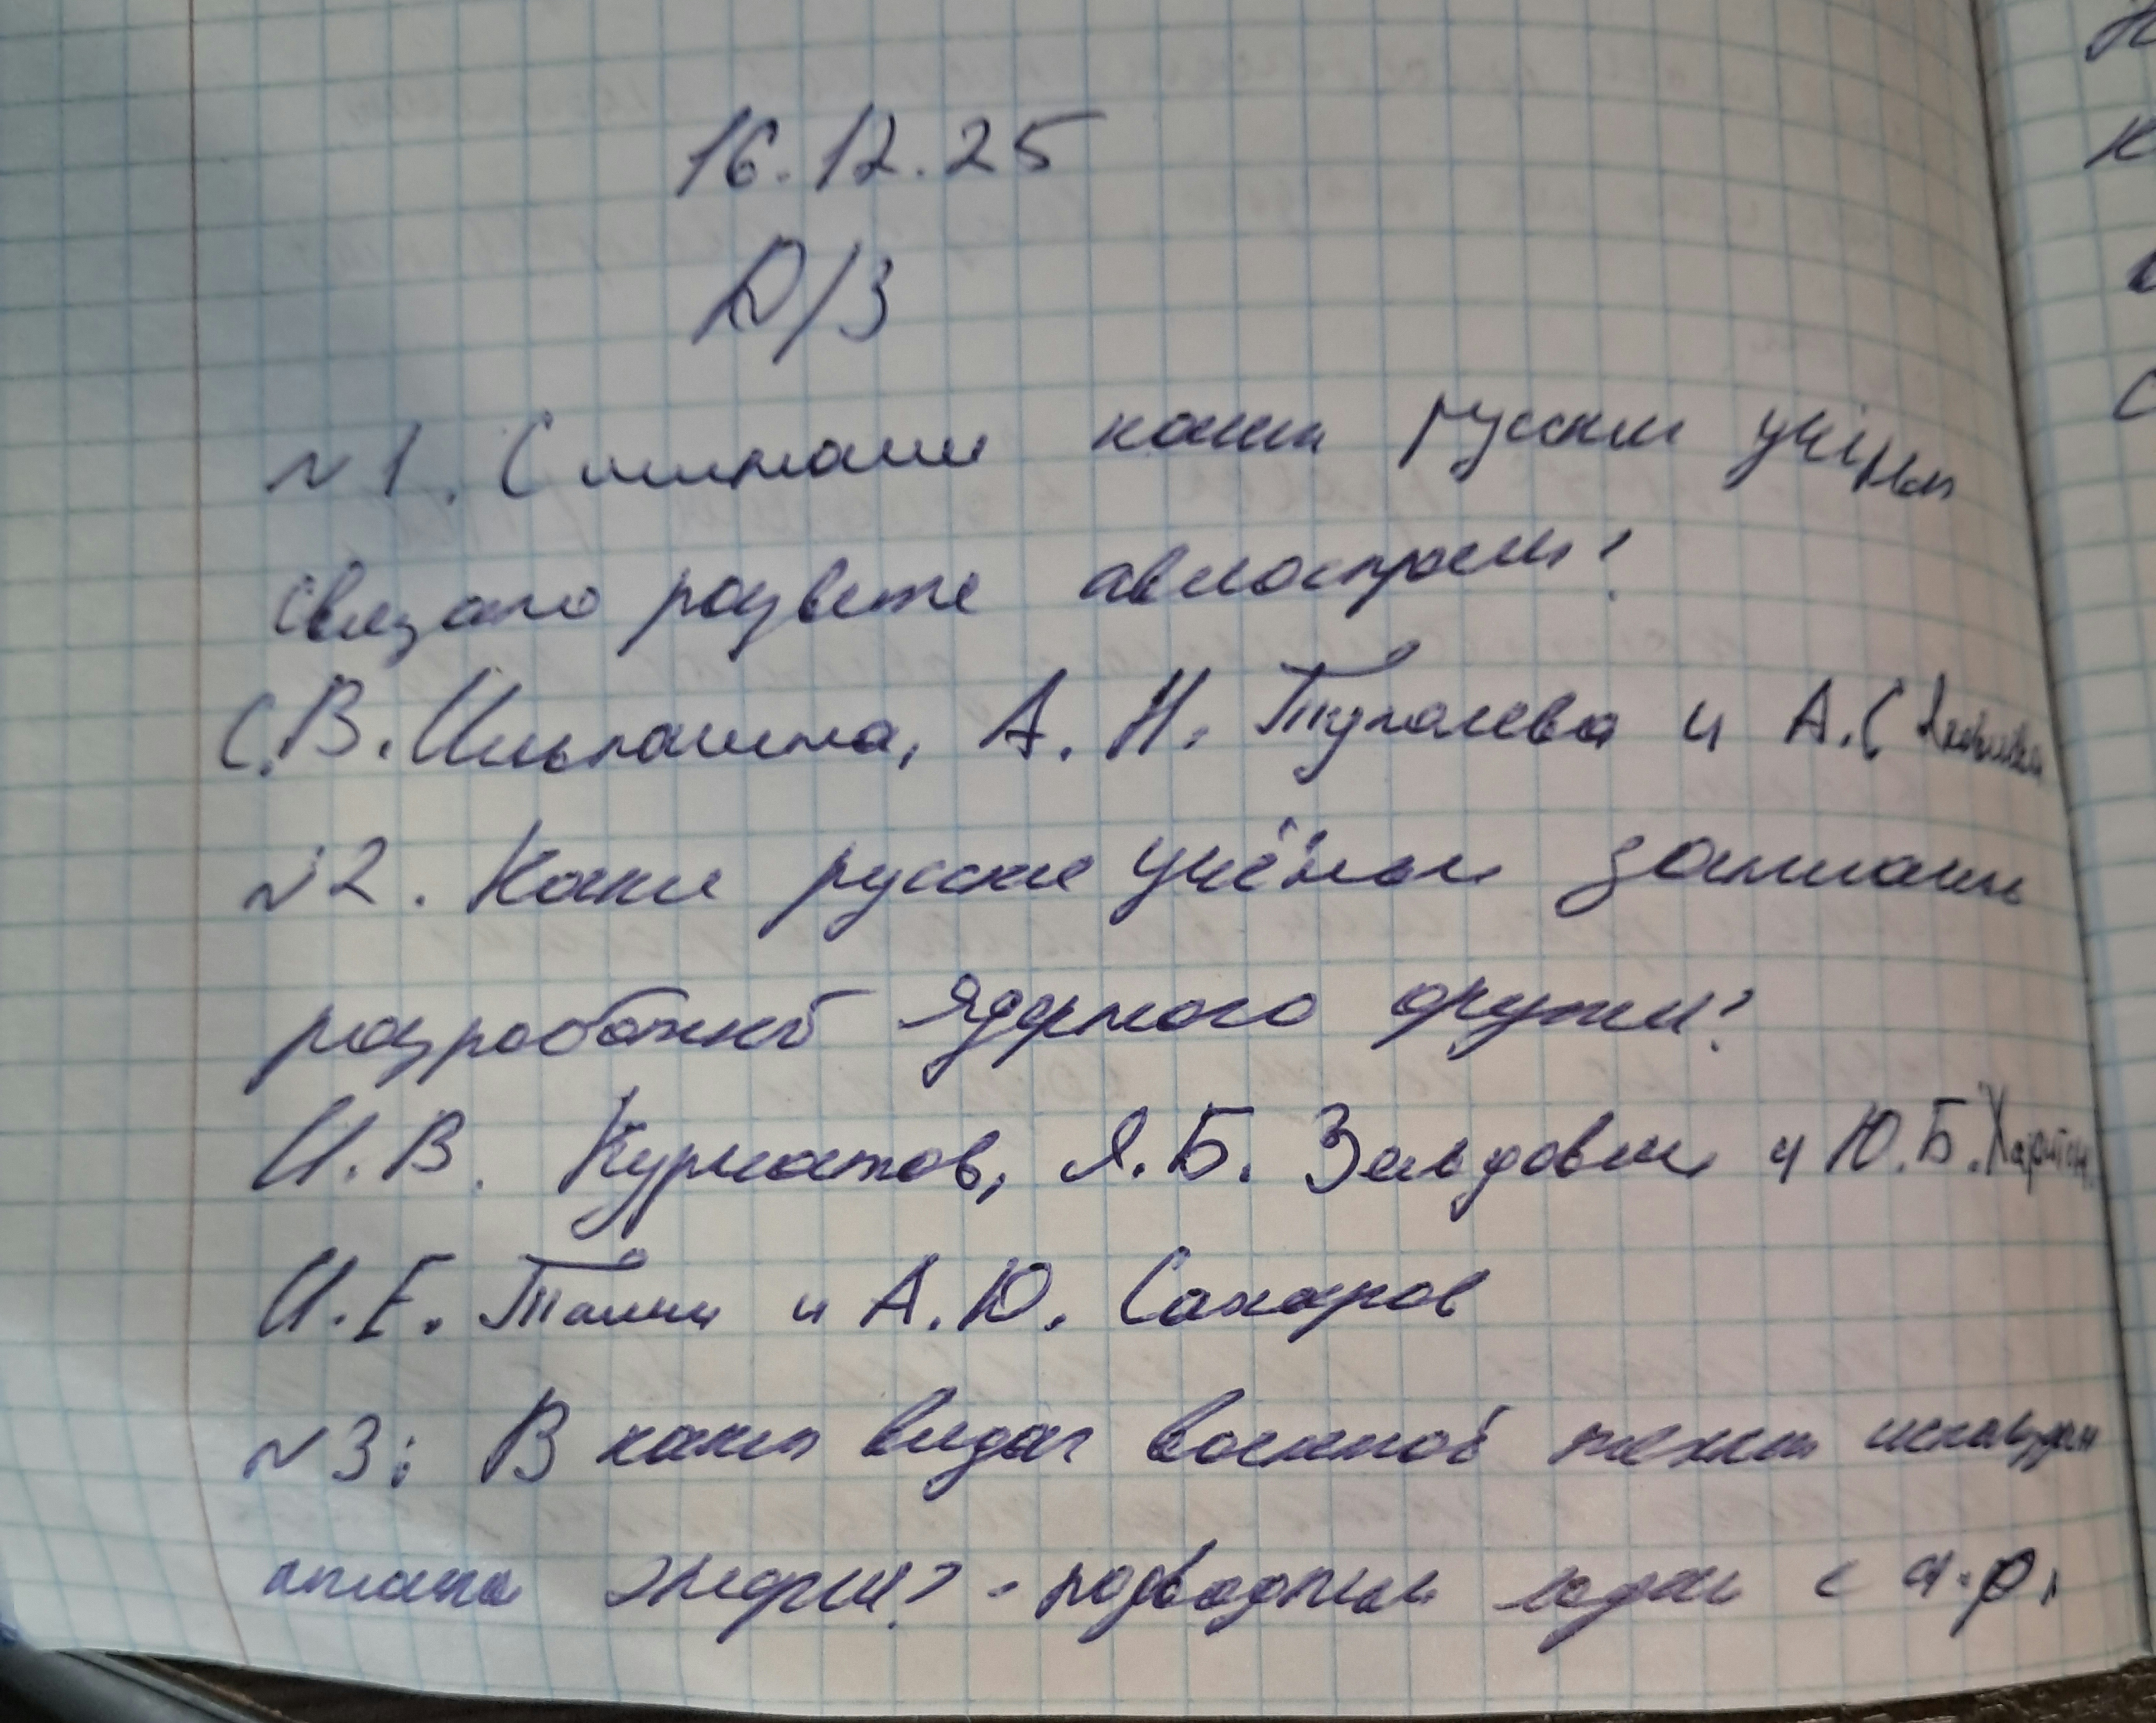 16.12.25
Д/З
№1. С именами каких русских учёных
связано развитие авиостроения?
С.В. Ильюшина, А. Н. Туполева и А.С Яковлева
№2. Какие русские учёные занимались
разработкой ядерного оружия?
И.В. Курчатов, Я.Б. Зельдович и Ю.Б. Харитон.
И.Е. Тамм и А.Ю. Сахаров
№3: В каких видах военной техники использован
атомная энергия? - подводные лодки с я.р.